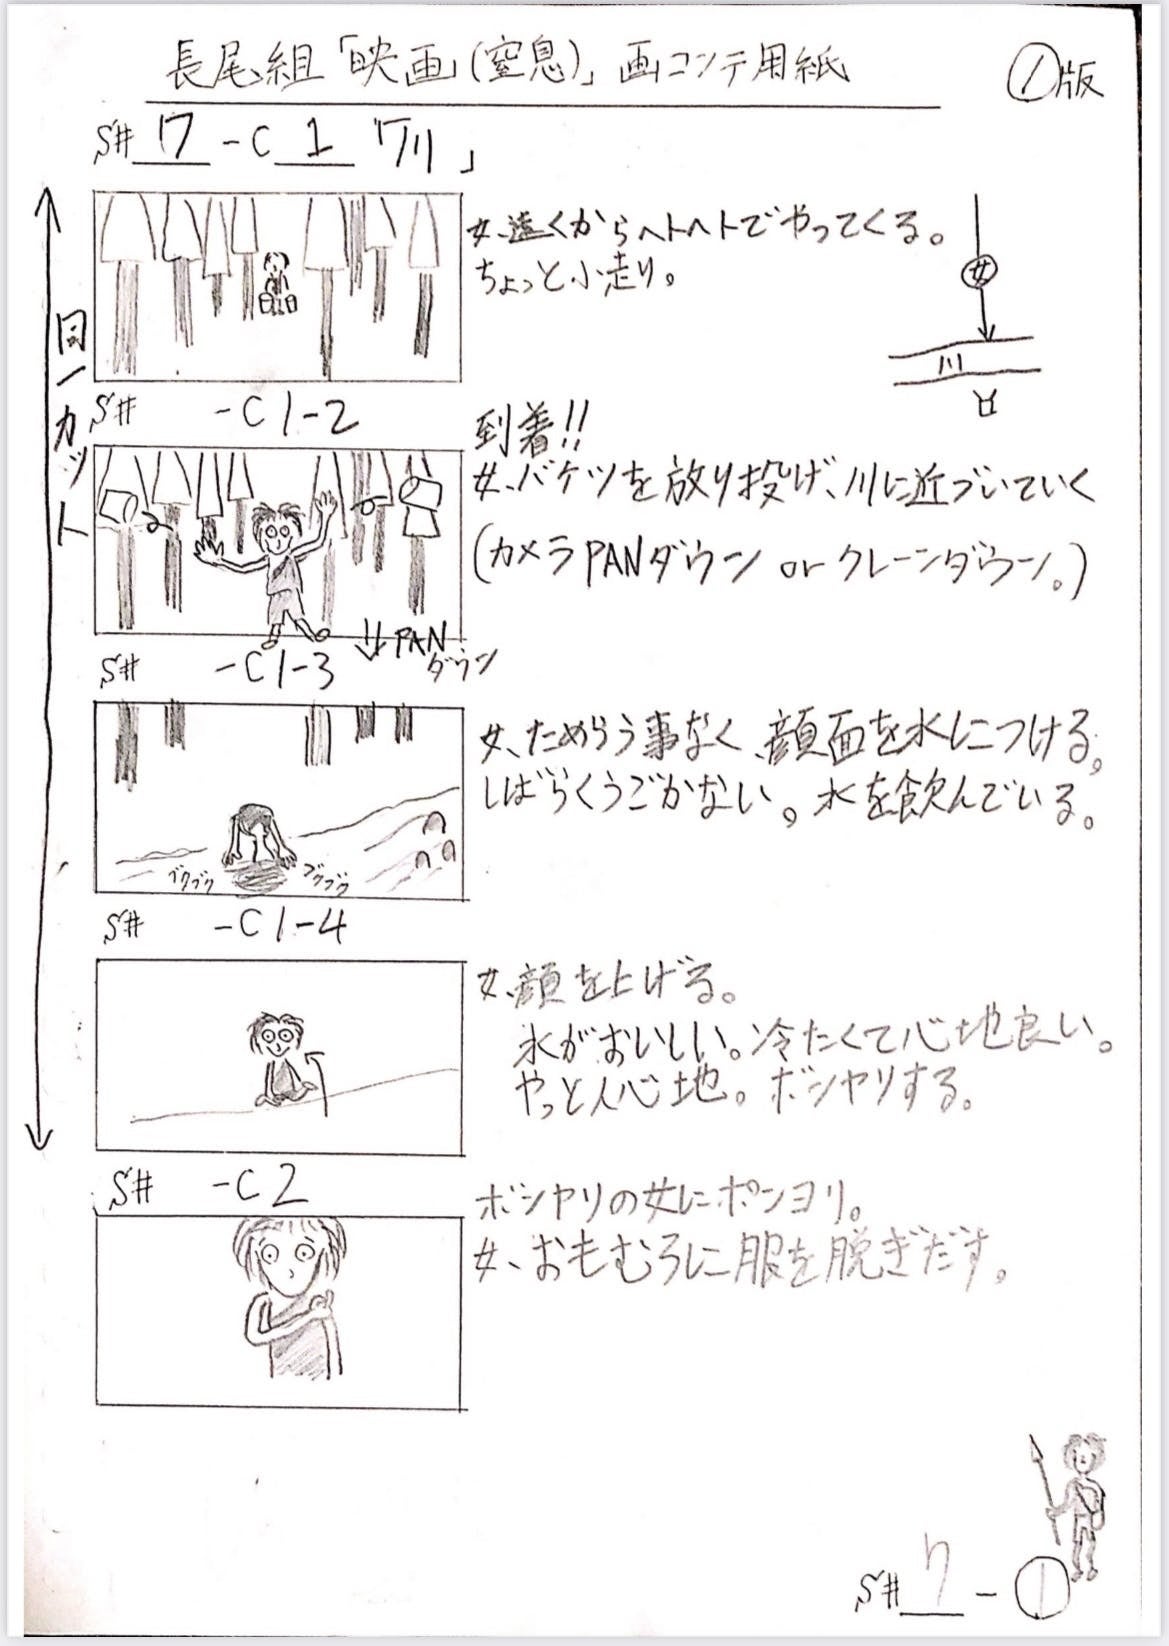 長尾組「映画(窒息)」画コンテ用紙
①版
S# 7 -C 1 「川」
同一カット
女、遠くからヘトヘトでやってくる。
ちょっと小走り。
女
川
S# -C1-2
到着!!
女、バケツを放り投げ、川に近づいていく
(カメラPANダウン or クレーンダウン。)
PAN
ダウン
S# -C1-3
女、ためらう事なく、顔面を水につける。
しばらくうごかない。水を飲んでいる。
ブクブク
ブクブク
S# -C1-4
女、顔を上げる。
水がおいしい。冷たくて心地良い。
やっと人心地。ボンヤリする。
S# -C2
ボンヤリの女にポンヨリ。
女、おもむろに服を脱ぎだす。
S# 7 - ①